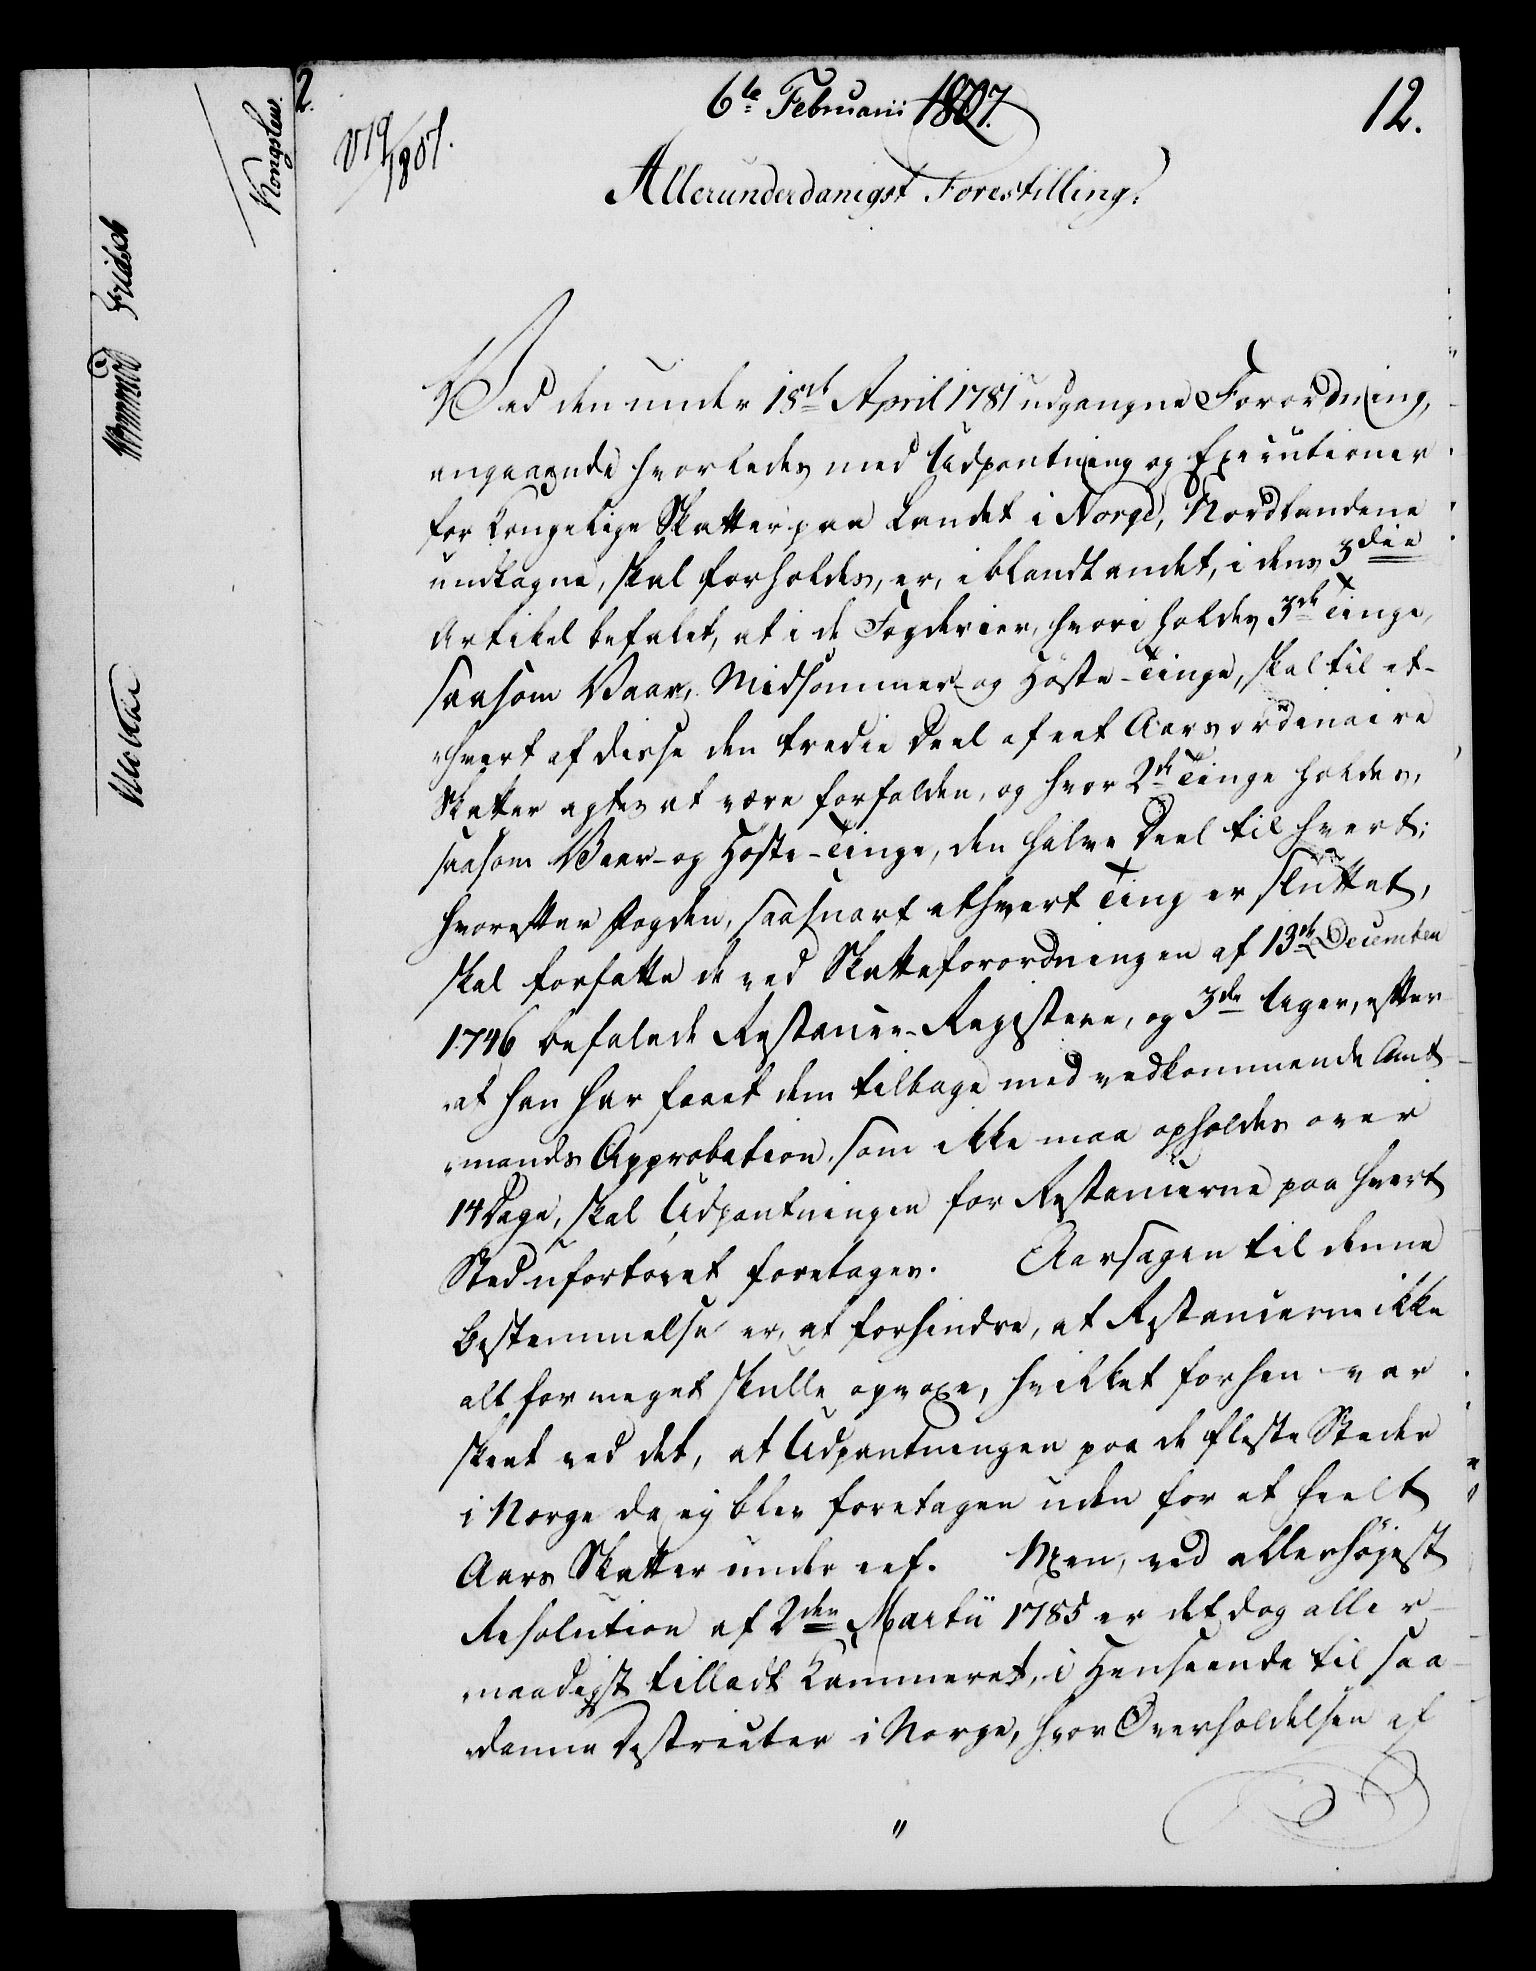 6te Februarii 1807.
12.
2.
V19/1807.
Allerunderdanigst Forestilling.
Ved den under 18de April 1781 udgangne Forordning,
angaaende hvorledes med Udpantning og Executioner
for Kongelige Skatter paa Landet i Norge, Nordlandene
undtagne, skal forholdes, er, iblandt andet, i dens 3die
Artikel befalet, at i de Fogderier, hvori holdes 3de Tinge,
saasom Vaar, Midsommer- og Høste-Tinge, skal til et-
hvert af disse den tredie Deel af eet Aars ordinaire
Skatter agtes at være forfalden, og hvor 2de Tinge holdes,
saasom Vaar- og Høste-Tinge, den halve Deel til hvert;
hvorefter Fogden, saasnart ethvert Ting er sluttet,
skal forfatte de ved Skatteforordningen af 13de December
1746 befalede Restance-Registere, og 3de Uger, efter
at han har faaet dem tilbage med vedkommende Amt-
mands Approbation, som ikke maa opholdes over
14 Dage, skal Udpantningen for Restancerne paa hvert
Sted ufortøvet foretages. Aarsagen til denne
Bestemmelse er, at forhindre, at Restancerne ikke
alt for meget skulle opvoxe, hvilket forhen var
skeet ved det, at Udpantningen paa de fleste Steder
i Norge da ej blev foretagen uden for et heelt
Aars Skatter under eet. Men, ved allerhøjest
Resolution af 2den Martii 1785 er det dog aller-
naadigst tilladt Kammeret, i Henseende til saa-
danne Districter i Norge, hvor Overholdelsen af
"
Kongslew.
Fridsch
Wormskiold
Moltke